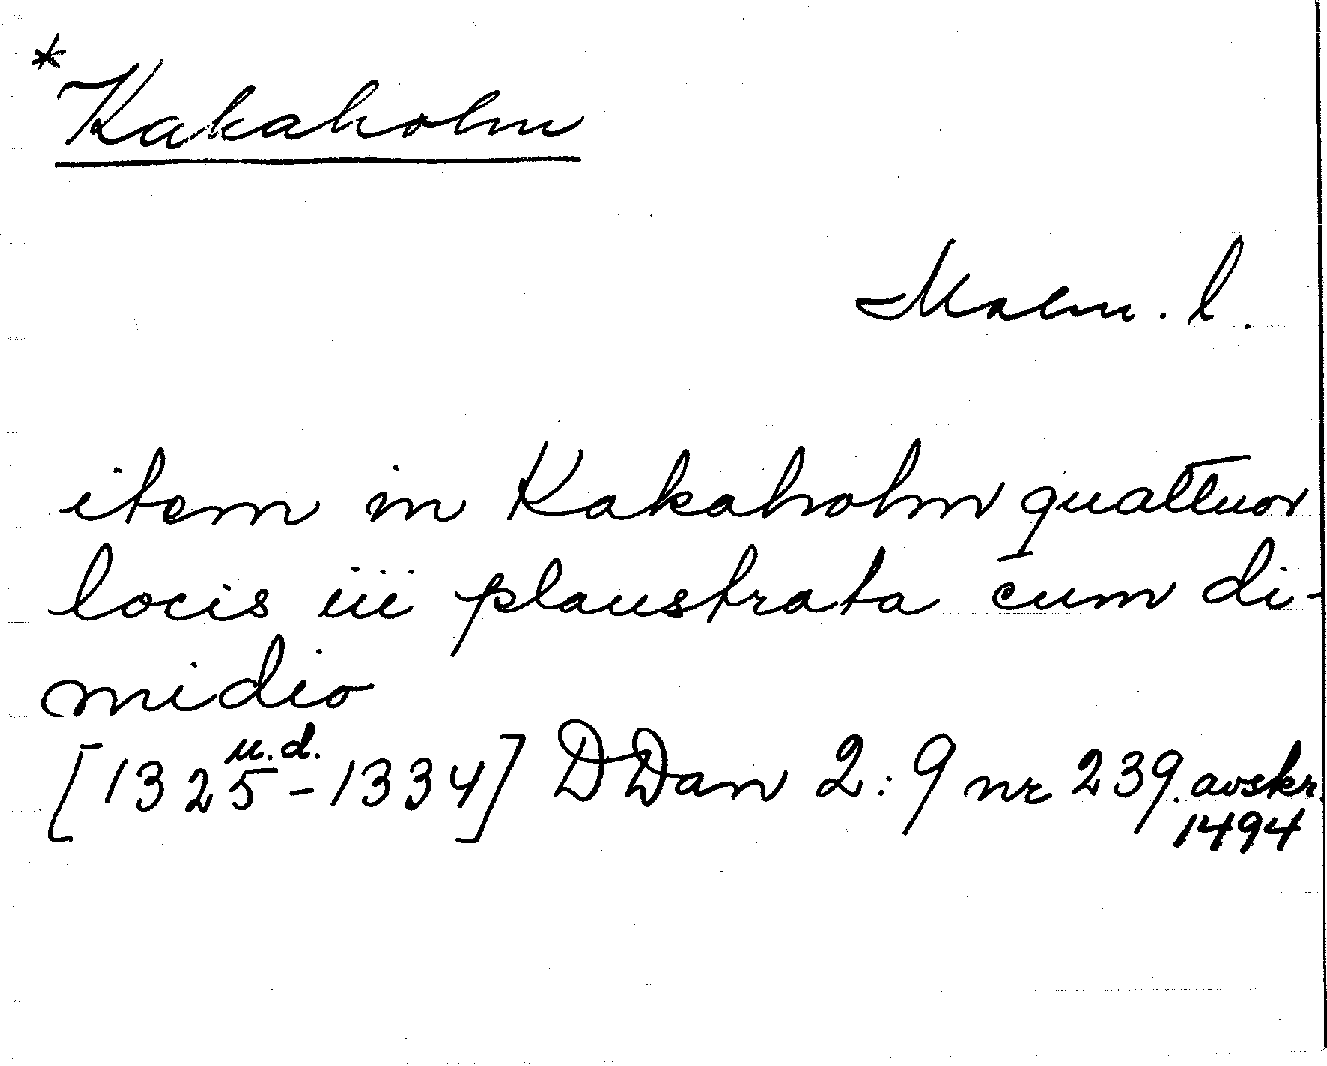 *Kakaholm
Malm. l.
item in Kakaholm quattuor
locis iii plaustrata cum di-
midio
[1325 u.d. -1334] DDan 2:9 nr 239. avskr.
1494